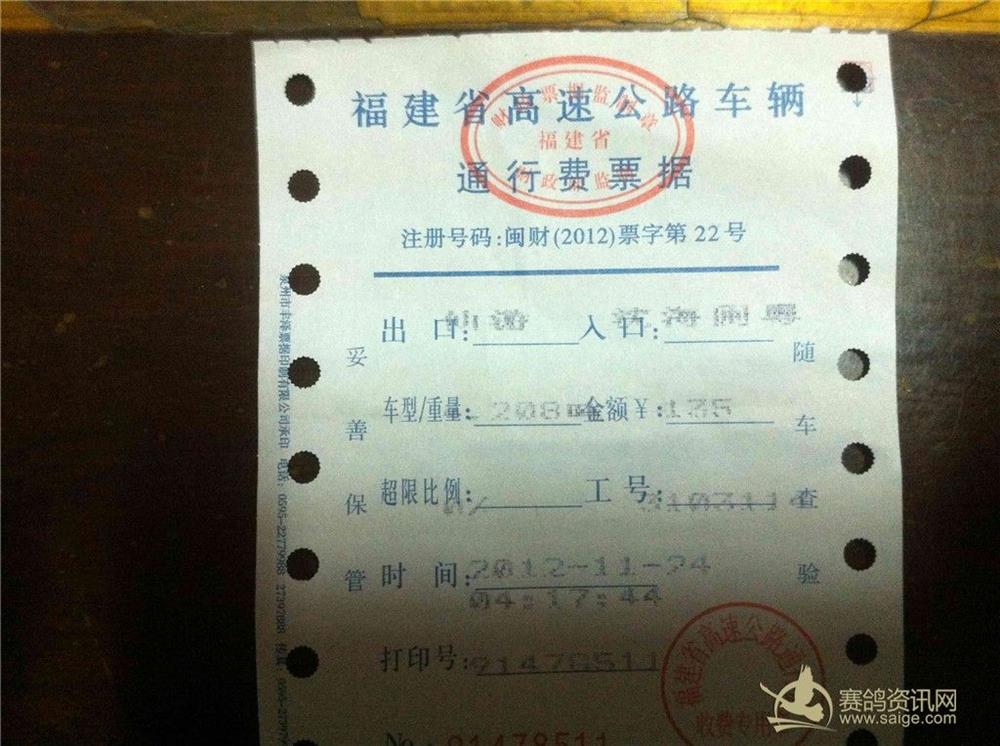 福建省高速公路车辆
通行费票据
福建省
注册号码:闽财(2012)票字第22号
出口:仙游 入口:沈海闽粤
车型/重量: 208 金额¥:135
超限比例:0% 工号:3103114
时间:2012-11-24
04:17:44
打印号:91478511
No. 91478511
妥善保管
随车查验
泉州市丰泽票据印刷有限公司承印 电话:0595-22779988 27397888
福建省高速公路通
收费专用
赛鸽资讯网
www.saige.com